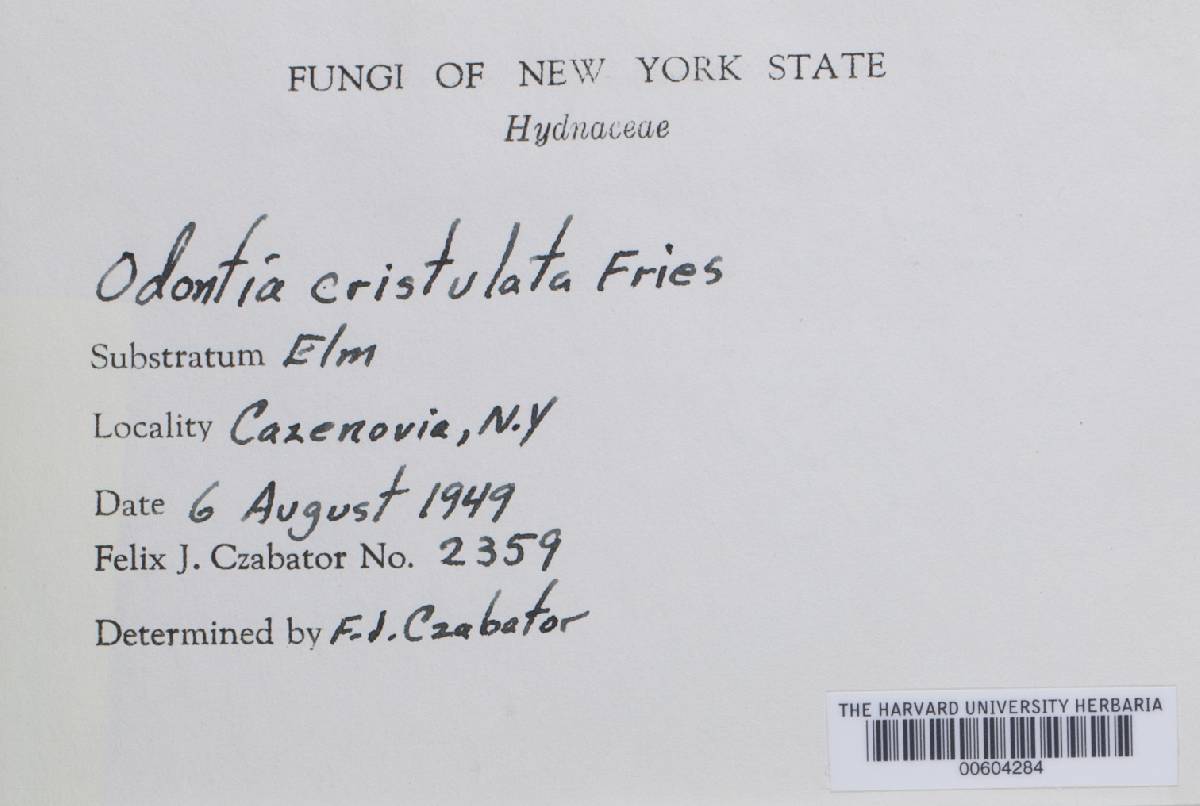 FUNGI OF NEW YORK STATE
Hydnaceae
Odontia cristulata Fries
Substratum Elm
Locality Cazenovia, N.Y
Date 6 August 1949
Felix J. Czabator No. 2359
Determined by F.J. Czabator
THE HARVARD UNIVERSITY HERBARIA
00604284